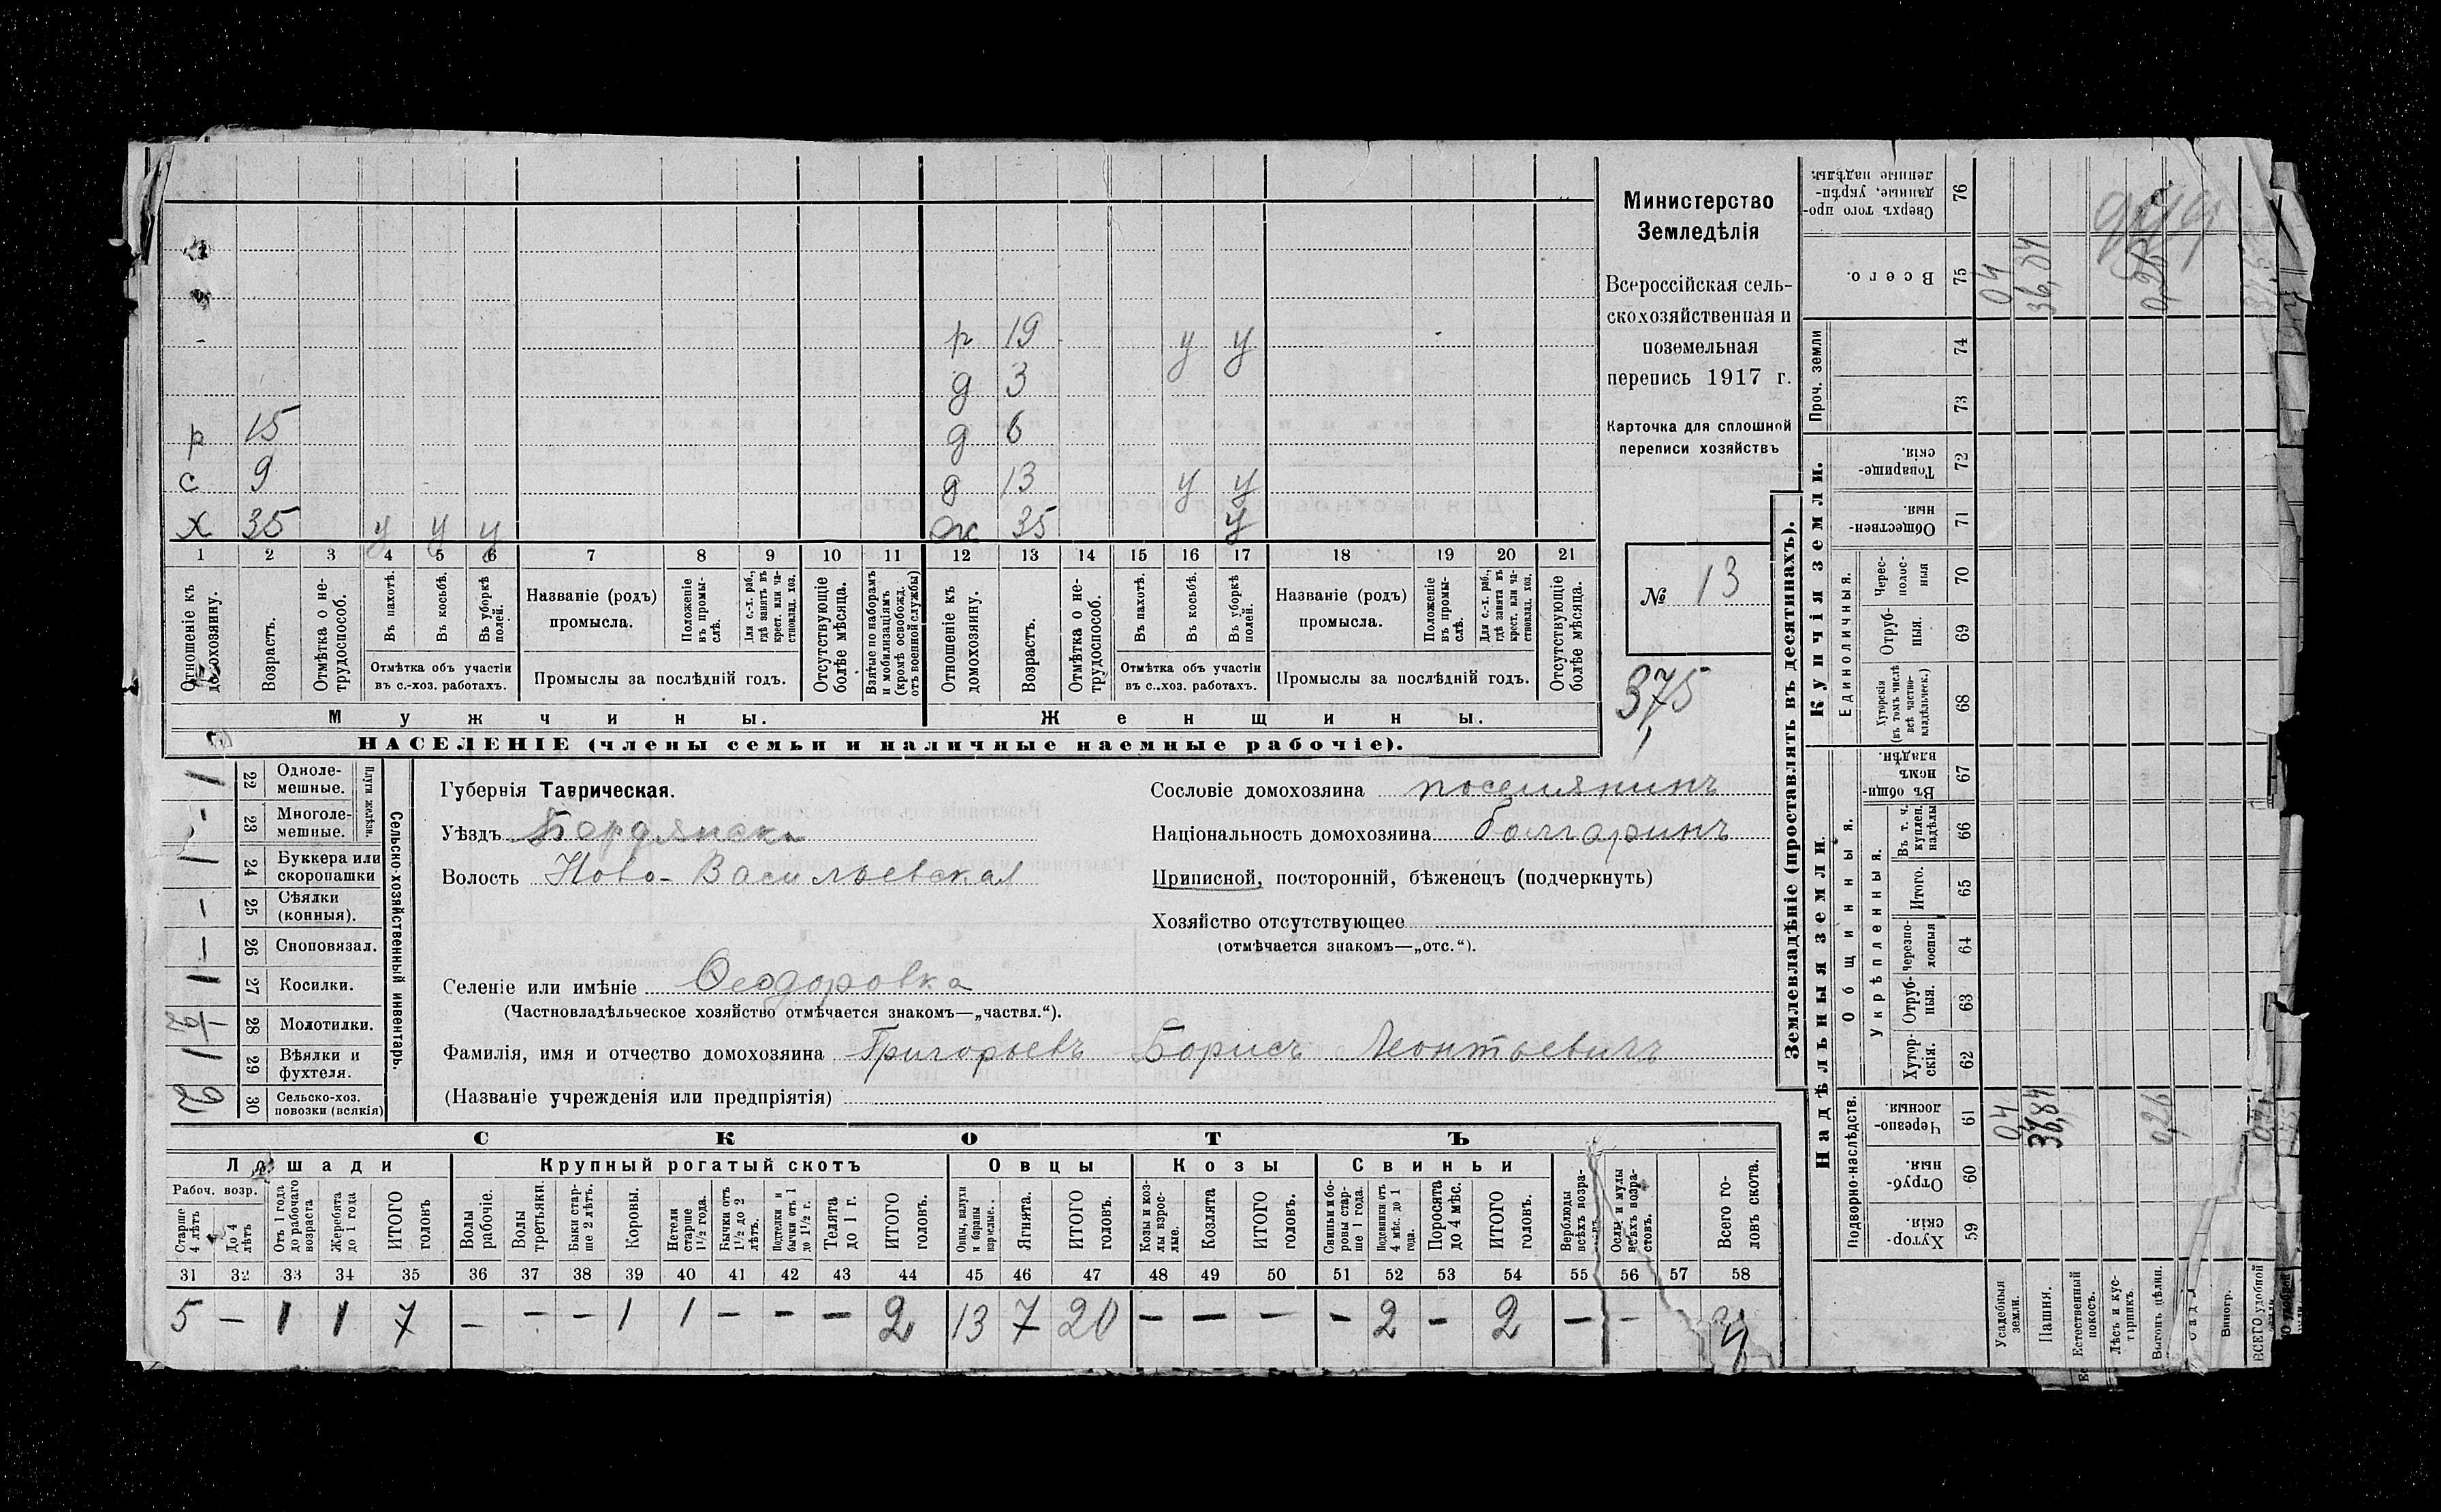 р 19 у у
д 3
р 15 д 6
с 9 д 13 у у
х 35 у у у ж 35 у
1 2 3 4 5 6 7 8 9 10 11 12 13 14 15 16 17 18 19 20 21
Отношеніе къ домохозяину.
Возрастъ.
Отмѣтка о не-трудоспособ.
Въ пахотѣ.
Въ косьбѣ.
Въ уборкѣ полей.
Отмѣтка объ участіи въ с.-хоз. работахъ.
Названіе (родъ) промысла.
Положеніе въ промы-слѣ.
Для с.-х. раб., гдѣ занятъ въ крест. или ча-стновлад. хоз.
Промыслы за послѣдній годъ.
Отсутствующіе болѣе мѣсяца.
Взятые по наборамъ и мобилизаціямъ (кромѣ освобожд. отъ военной службы)
Отношеніе къ домохозяину.
Возрастъ.
Отмѣтка о не-трудоспособ.
Въ пахотѣ.
Въ косьбѣ.
Въ уборкѣ полей.
Отмѣтка объ участіи въ с.-хоз. работахъ.
Названіе (родъ) промысла.
Положеніе въ промы-слѣ.
Для с.-х. раб., гдѣ занята въ крест. или ча-стновлад. хоз.
Промыслы за послѣдній годъ.
Отсутствующіе болѣе мѣсяца.
Мужчины. Женщины.
НАСЕЛЕНІЕ (члены семьи и наличные наемные рабочіе).
Министерство
Земледѣлія
Всероссійская сель-
скохозяйственная и
поземельная
перепись 1917 г.
Карточка для сплошной
переписи хозяйствъ
№ 13
375
Плуги желѣзн.
22 Одноле-мешные. 1
23 Многоле-мешные. -
24 Буккера или скоропашки 1
25 Сѣялки (конныя). -
26 Сноповязал. -
27 Косилки. 1
28 Молотилки. 1/2
29 Вѣялки и фухтеля. 1
30 Сельско-хоз. повозки (всякія) 2
Сельско-хозяйственный инвентарь.
Губернія Таврическая.
Уѣздъ Бердянскъ
Волость Ново-Васильевская
Сословіе домохозяина поселянинъ
Національность домохозяина болгаринъ
Приписной, посторонній, бѣженецъ (подчеркнуть)
Хозяйство отсутствующее
(отмѣчается знакомъ—„отс.“).
Селеніе или имѣніе Ѳеодоровка
(Частновладѣльческое хозяйство отмѣчается знакомъ—„частвл.“).
Фамилія, имя и отчество домохозяина Григорьевъ Борисъ Леонтьевичъ
(Названіе учрежденія или предпріятія)
СКОТЪ
Лошади Крупный рогатый скотъ Овцы Козы Свиньи
Рабоч. возр.
Старше 4 лѣтъ
До 4 лѣтъ
Отъ 1 года до рабочаго возраста
Жеребята до 1 года
ИТОГО головъ
Волы рабочіе.
Волы третьяки.
Быки стар-ше 2 лѣтъ.
Коровы.
Нетели старше 1 1/2 года.
Бычки отъ 1 1/2 до 2 лѣтъ.
Подтелки и бычки отъ 1 до 1 1/2 г.
Телята до 1 г.
ИТОГО головъ.
Овцы, валухи и бараны взрослые.
Ягнята.
ИТОГО головъ.
Козы и коз-лы взрос-лые.
Козлята
ИТОГО головъ.
Свиньи и бо-ровы стар-ше 1 года.
Подсвинки отъ 4 мѣс. до 1 года.
Поросята до 4 мѣс.
ИТОГО головъ.
Верблюды всѣхъ возра-
Ослы и мулы всѣхъ возра-стовъ.
Всего го-ловъ скота.
31 32 33 34 35 36 37 38 39 40 41 42 43 44 45 46 47 48 49 50 51 52 53 54 55 56 57 58
5 - 1 1 7 - - - 1 1 - - - 2 13 7 20 - - - - 2 - 2 - -
Землевладѣніе (проставлять въ десятинахъ).
Надѣльныя земли. Купчія земли. Проч. земли
Подворно-наслѣдств. Общинныя. Укрѣпленныя. Единоличныя.
Сверхъ того про-данные, укрѣп-ленные надѣлы. 76
Всего. 75
74
73
Товарище-скія. 72
Обществен-ныя. 71
Черес-полос-ныя 70
Отруб-ныя. 69
Хуторскія (въ томъ числѣ всѣ частно-владѣльческ.) 68
Въ общи-номъ владѣн. 67
Въ т. ч. куплен. надѣлы 66
Итого. 65
Черезпо-лосныя 64
Отруб-ныя. 63
Хутор-скія. 62
Черезпо-лосныя. 61
Отруб-ныя. 60
Хутор-скія. 59
Усадебныя земли. 0,4 04
Пашня. 36,84 36,04
Естественный покосъ.
Лѣсъ и кус-тарникъ.
Выгонъ цѣлин. 0,26 0,26
Виногр.
ВСЕГО удобной